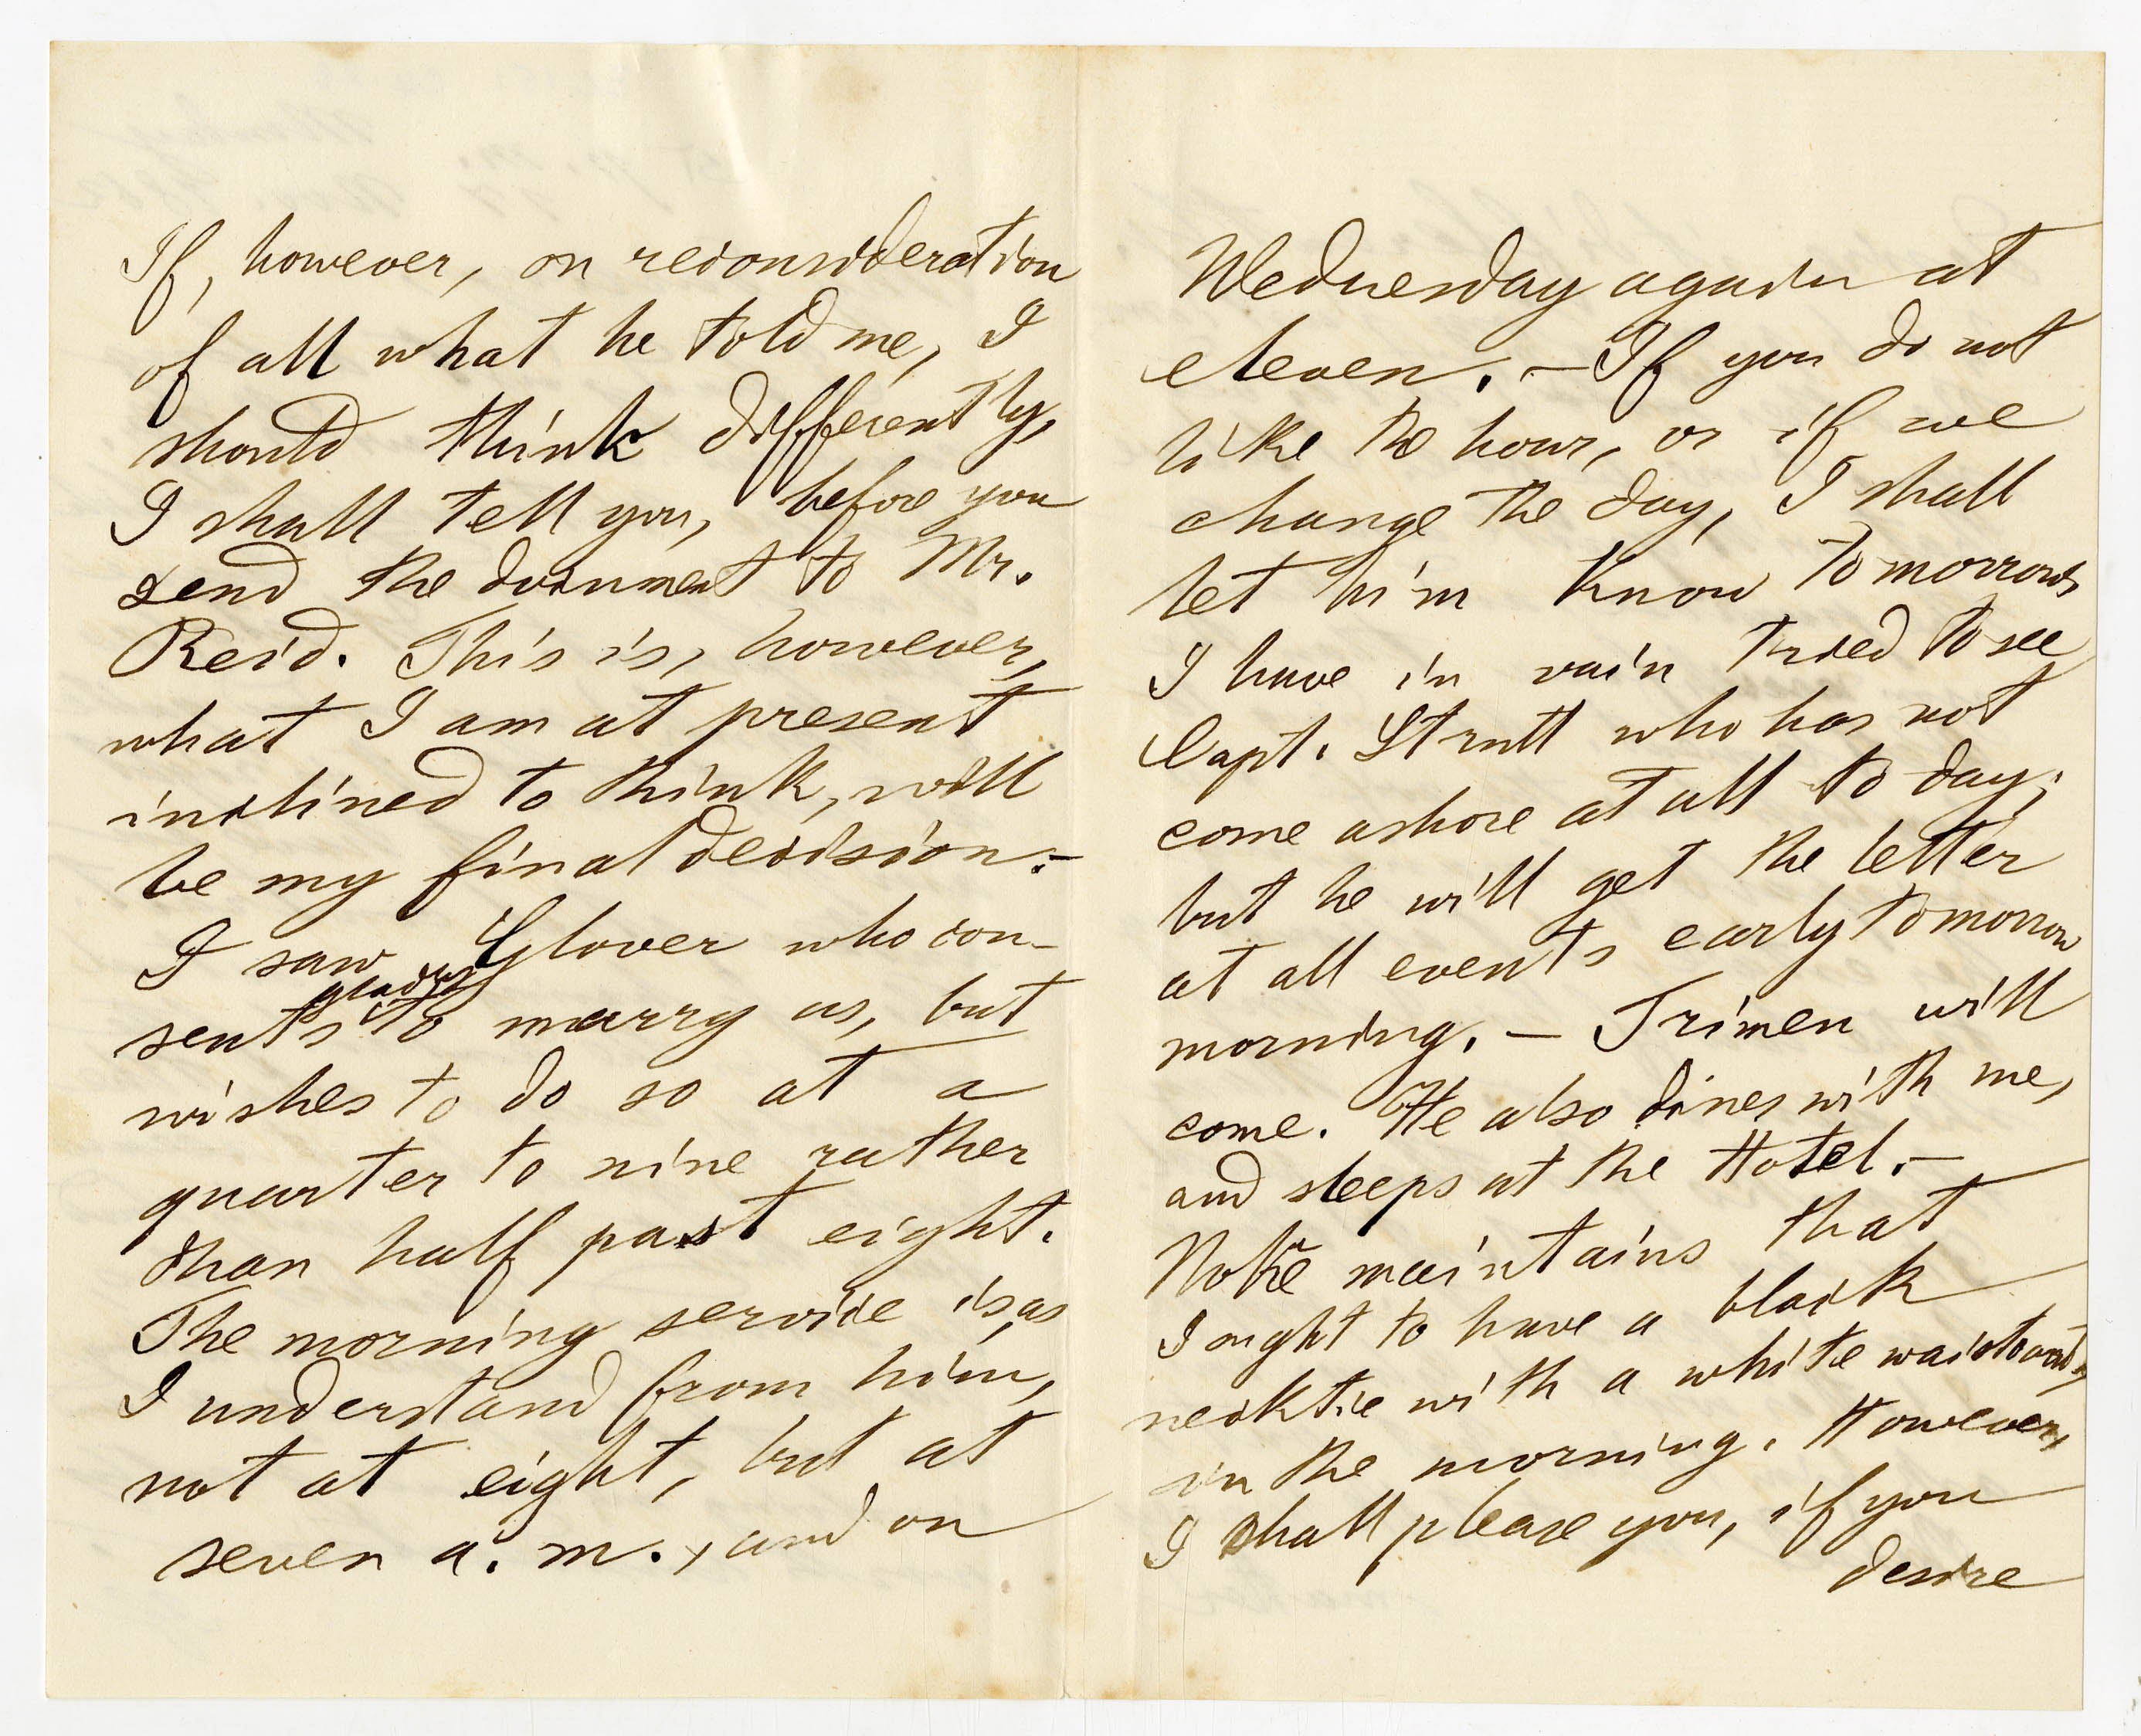 If, however, on reconsideration
of all what he told me, I
should think differently,
I shall tell you, before you
send the document to Mr.
Reid. This is, however,
what I am at present
inclined to think, will
be my final decision.–
I saw Glover who con-
gladly
sents to marry us, but
wishes to do so at a
quarter to nine rather
than half past eight.
The morning service is, as
I understand from him,
not at eight, but at
seven a. m., and on
Wednesday again at
eleven. – If you do not
like the hour, or if we
change the day, I shall
let him know tomorrow.
I have in vain tried to see
Capt. Strutt who has not
come ashore at all to day;
but he will get the letter
at all events early tomorrow
morning. – Trimen will
come. He also dines with me,
and sleeps at the Hotel. –
Nölke maintains that
I ought to have a black
necktie with a white waistcoat,
in the morning. However,
I shall please you, if you
desire